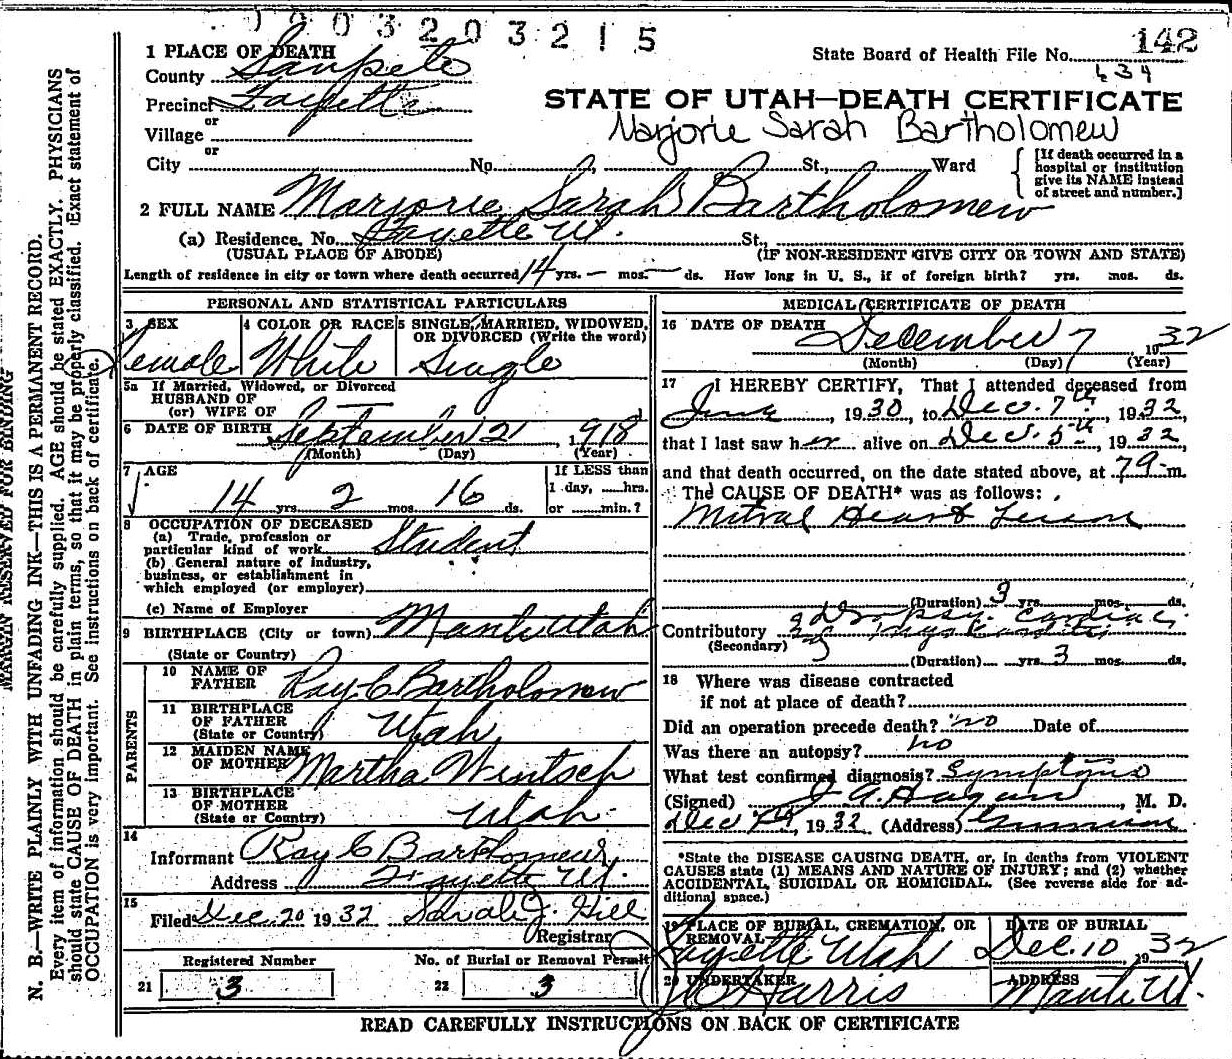 1903203215
142
State Board of Health File No.
634
1 PLACE OF DEATH
County Sanpete
Precinct Fayette
or
Village
or
City No. St., Ward
STATE OF UTAH—DEATH CERTIFICATE
Marjorie Sarah Bartholomew
[If death occurred in a hospital or institution give its NAME instead of street and number.]
2 FULL NAME Marjorie Sarah Bartholomew
(a) Residence. No. Fayette Ut. St.,
(USUAL PLACE OF ABODE) (IF NON-RESIDENT GIVE CITY OR TOWN AND STATE)
Length of residence in city or town where death occurred 14 yrs. — mos. — ds. How long in U. S., if of foreign birth? yrs. mos. ds.
PERSONAL AND STATISTICAL PARTICULARS
3 SEX 4 COLOR OR RACE 5 SINGLE, MARRIED, WIDOWED, OR DIVORCED (Write the word)
Female White Single
5a If Married, Widowed, or Divorced
HUSBAND OF
(or) WIFE OF —
6 DATE OF BIRTH September 21, 1918
(Month) (Day) (Year)
7 AGE If LESS than
14 yrs. 2 mos. 16 ds. 1 day, hrs.
or min.?
8 OCCUPATION OF DECEASED
(a) Trade, profession or
particular kind of work Student
(b) General nature of industry,
business, or establishment in
which employed (or employer)
(c) Name of Employer
9 BIRTHPLACE (City or town) Manti Utah
(State or Country)
PARENTS
10 NAME OF FATHER Ray C Bartholomew
11 BIRTHPLACE OF FATHER (State or Country) Utah
12 MAIDEN NAME OF MOTHER Martha Wintsch
13 BIRTHPLACE OF MOTHER (State or Country) Utah
14
Informant Ray C Bartholomew
Address Fayette Ut.
15
Filed Dec. 20 1932 Sarah J. Hill
Registrar
Registered Number No. of Burial or Removal Permit
21 3 22 3
MEDICAL CERTIFICATE OF DEATH
16 DATE OF DEATH December 7 1932
(Month) (Day) (Year)
17 I HEREBY CERTIFY, That I attended deceased from
June, 1930, to Dec. 7th, 1932,
that I last saw her alive on Dec. 5th, 1932,
and that death occurred, on the date stated above, at m.
The CAUSE OF DEATH* was as follows:
Mitral Heart Lesion
(Duration) 3 yrs. mos. ds.
Contributory Cardiac
(Secondary) Myocarditis
(Duration) yrs. 3 mos. ds.
18 Where was disease contracted
if not at place of death?
Did an operation precede death? no Date of
Was there an autopsy? no
What test confirmed diagnosis? Symptoms
(Signed) J. A. Hagan, M. D.
Dec 7th, 1932 (Address) Gunnison
*State the DISEASE CAUSING DEATH, or, in deaths from VIOLENT
CAUSES state (1) MEANS AND NATURE OF INJURY; and (2) whether
ACCIDENTAL, SUICIDAL OR HOMICIDAL. (See reverse side for ad-
ditional space.)
19 PLACE OF BURIAL, CREMATION, OR REMOVAL DATE OF BURIAL
Fayette Utah Dec. 10 1932
20 UNDERTAKER ADDRESS
Harris Manti Ut.
READ CAREFULLY INSTRUCTIONS ON BACK OF CERTIFICATE
MARGIN RESERVED FOR BINDING
N. B.—WRITE PLAINLY WITH UNFADING INK—THIS IS A PERMANENT RECORD.
Every item of information should be carefully supplied. AGE should be stated EXACTLY. PHYSICIANS
should state CAUSE OF DEATH in plain terms, so that it may be properly classified. Exact statement of
OCCUPATION is very important. See instructions on back of certificate.